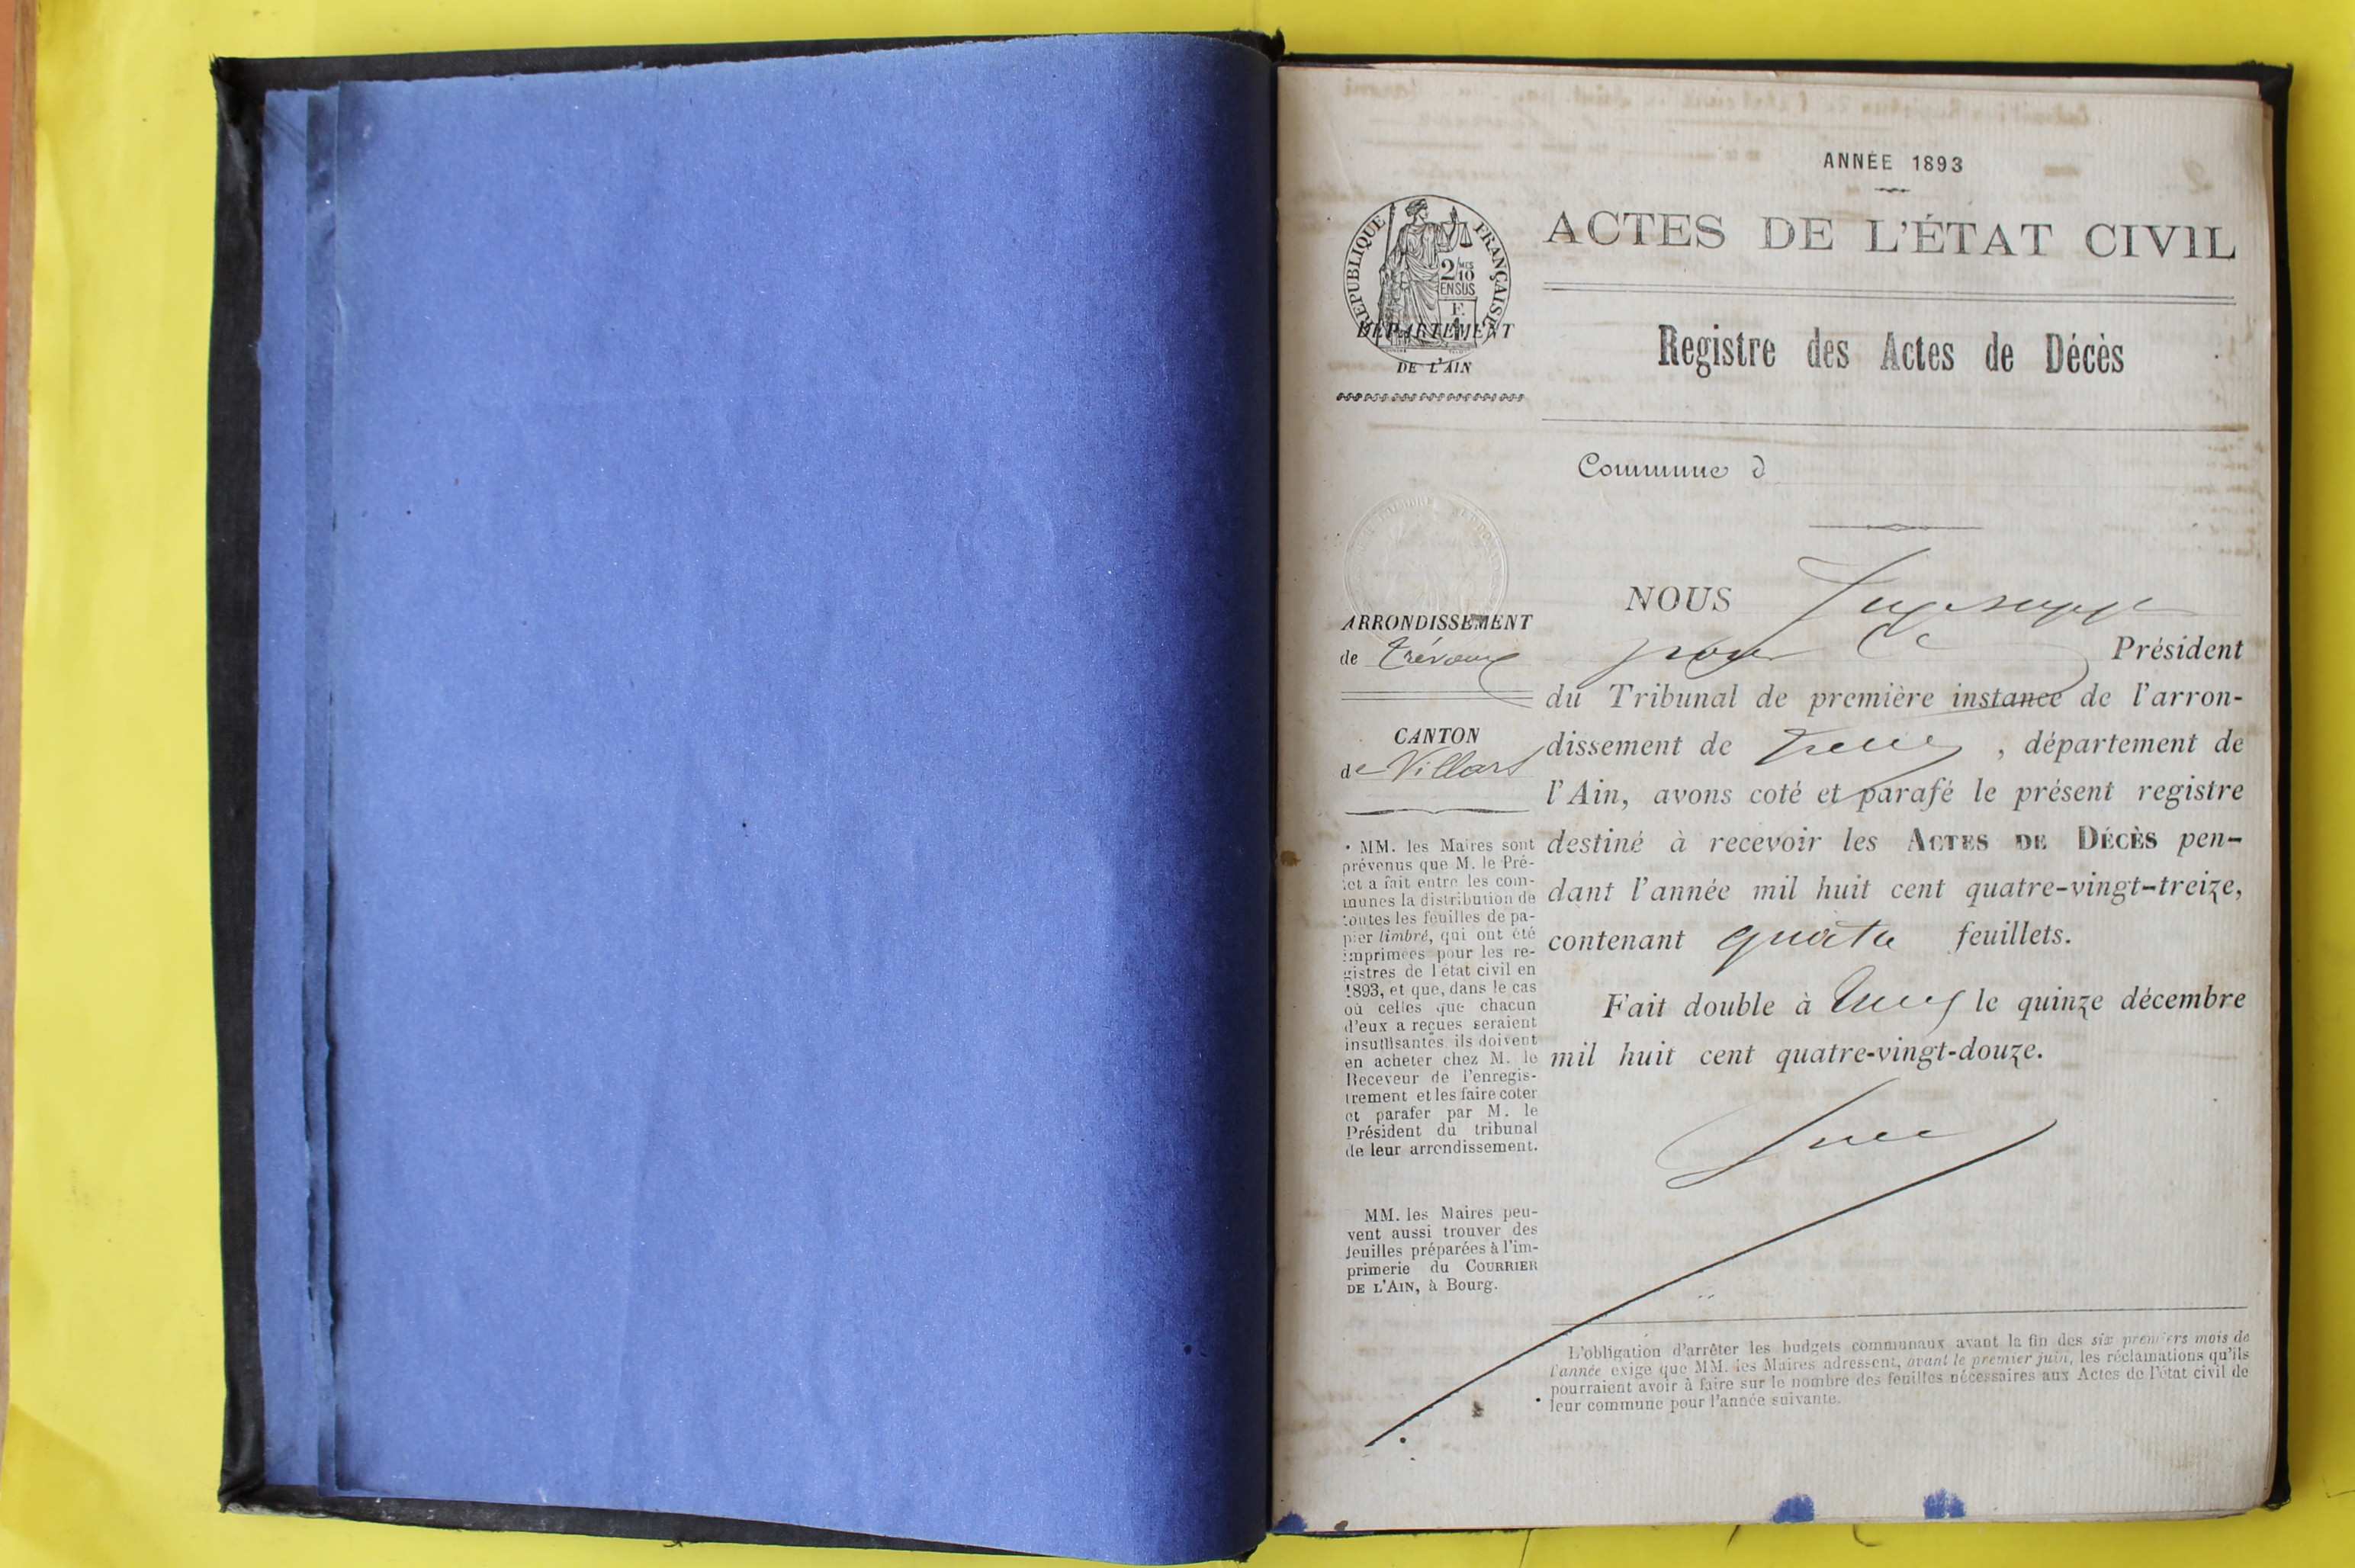 ANNÉE 1893
ACTES DE L'ÉTAT CIVIL
RÉPUBLIQUE FRANÇAISE
2/10 MES
EN SUS
DÉPARTEMENT
DE L'AIN
Registre des Actes de Décès
Commune d
NOUS Juge supp
ARRONDISSEMENT
de Trévoux
pour le Président
du Tribunal de première instance de l'arron-
CANTON
de Villars
dissement de , département de
l'Ain, avons coté et parafé le présent registre
destiné à recevoir les ACTES DE DÉCÈS pen-
dant l'année mil huit cent quatre-vingt-treize,
contenant quatre feuillets.
Fait double à le quinze décembre
mil huit cent quatre-vingt-douze.
MM. les Maires sont
prévenus que M. le Pré-
fet a fait entre les com-
munes la distribution de
toutes les feuilles de pa-
pier timbré, qui ont été
imprimées pour les re-
gistres de l'état civil en
1893, et que, dans le cas
où celles que chacun
d'eux a reçues seraient
insuffisantes, ils doivent
en acheter chez M. le
Receveur de l'enregis-
trement et les faire coter
et parafer par M. le
Président du tribunal
de leur arrondissement.
MM. les Maires peu-
vent aussi trouver des
feuilles préparées à l'im-
primerie du COURRIER
DE L'AIN, à Bourg.
L'obligation d'arrêter les budgets communaux avant la fin des six premiers mois de
l'année exige que MM. les Maires adressent, avant le premier juin, les réclamations qu'ils
pourraient avoir à faire sur le nombre des feuilles nécessaires aux Actes de l'état civil de
leur commune pour l'année suivante.